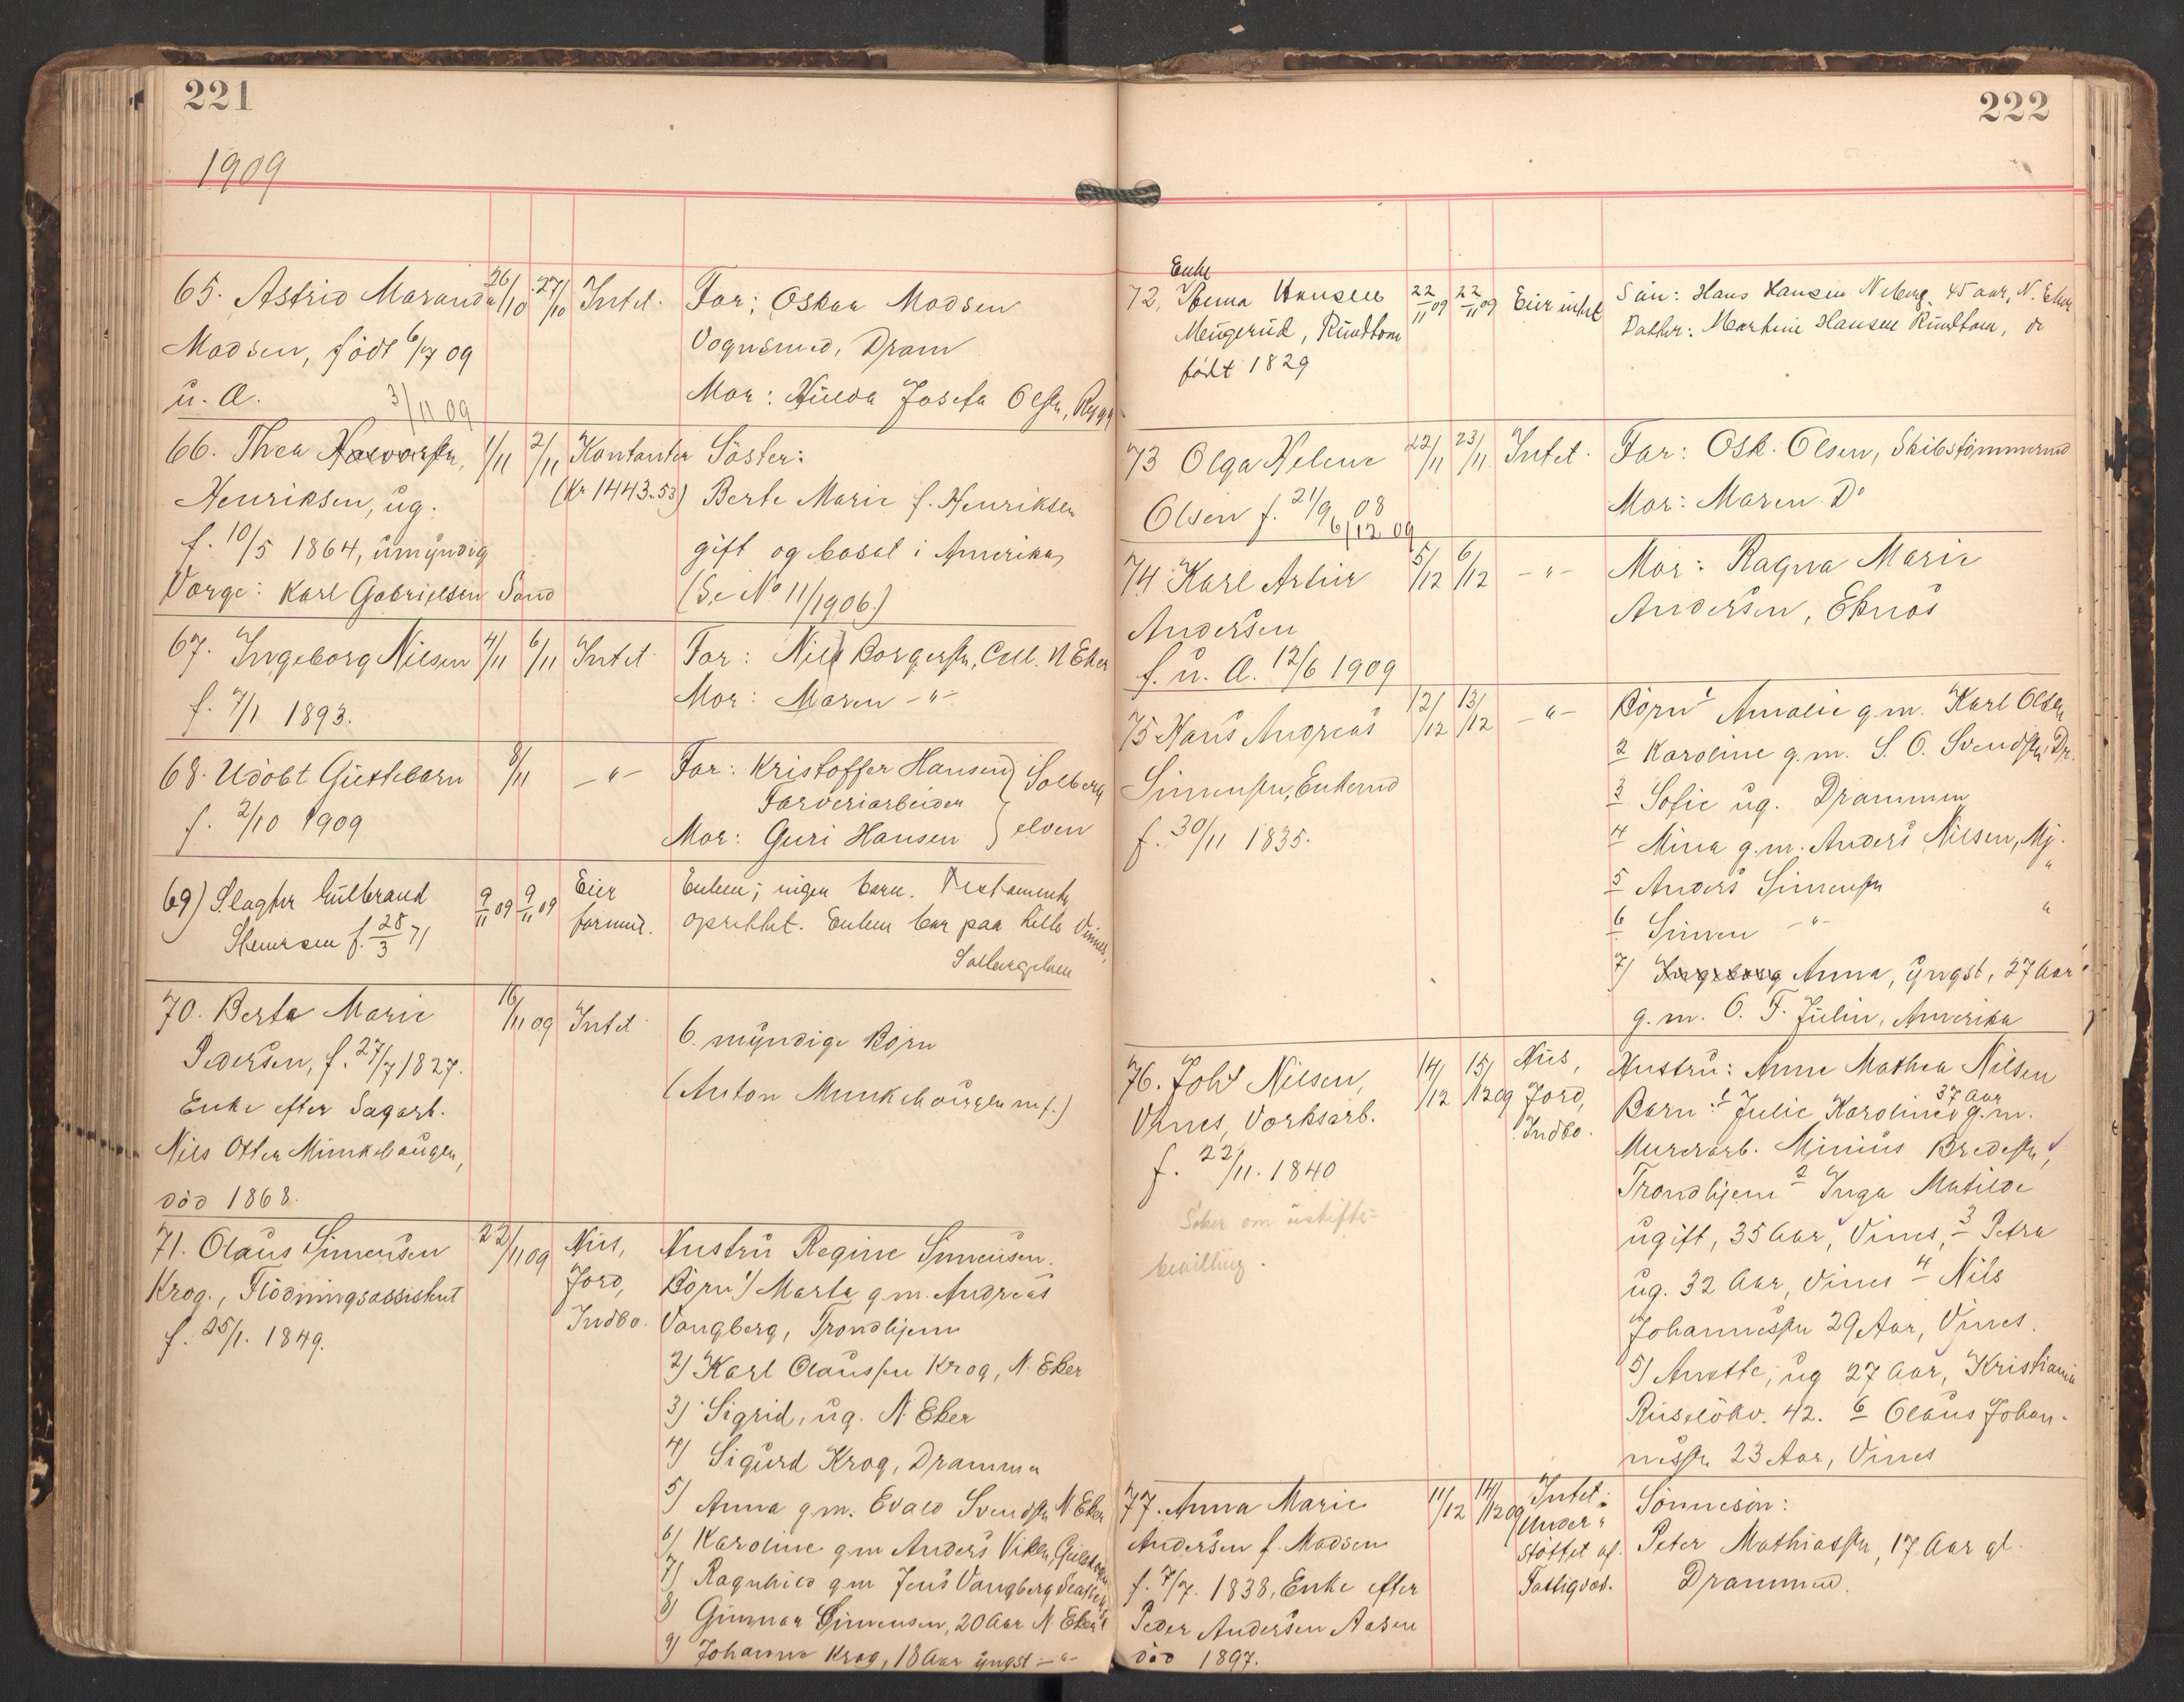 221
1909
65. Astrid Maranda 26/10 27/10 Intet. Far: Oskar Madsen
Madsen, født 6/7 09 Vognsmed, Dram
u. Æ. 3/11 09 Mor: Hilda Josefa Olsen, Rygg
66. Thea Halvorsen, 1/11 2/11 Kontanter Søster:
Henriksen, ug. (Kr 1443.53) Berte Marie f. Henriksen
f. 10/5 1864, umyndig gift og bosat i Amerika,
Værge: Karl Gabrielsen Sand (Se No 11/1906.)
67. Ingeborg Nilsen 4/11 6/11 Intet. Far: Nils Borgersen, Cell. N Eker
f. 7/1 1893. Mor: Maren -"-
68. Udøbt Guttebarn 8/11 -"- Far: Kristoffer Hansen } Solberg
Farveriarbeider
f. 2/10 1909 Mor: Guri Hansen } elven
69) Slagter Gulbrand 9/11 09 9/11 09 Eier Enken; ingen barn. Testamente
Steensen f. 28/3 71 formue. oprettet. Enken bor paa Lille Vinnes,
Solbergelven
70. Berta Marie 16/11 09 Intet 6. myndige Børn
Pedersen, f. 27/7 1827. (Anton Munkehaugen m.f.)
Enke efter Sagarb.
Nils Otter Munkehaugen,
død 1868.
71. Olaus Simensen 22/11 09 Hus, Hustru Regine Simensen.
Krog., Flødningsassistent Jord, Børn 1) Marta g.m. Andreas
f. 25/1. 1849. Indbo. Vangberg, Trondhjem
2) Karl Olaussen Krog, N. Eker
3) Sigrid, ug. N. Eker
4) Sigurd Krog, Drammen
5) Anna g.m. Evald Svendsen N Eker
6) Karoline g.m Anders Viken,
7) Ragnhild g.m Jens Vangberg
8) Gunnar Simensen, 20 Aar N. Eker
9) Johanna Krog, 18 Aar yngst -"-
222
Enke
72, Hansen 22/11 09 22/11 09 Eier intet Søn: Hans Hansen Neberg. 45 aar, N. Eker
Mengerud, Rundtom Datter: Martine Hansen Rundtom, do
født 1829
73 Olga Helene 22/11 23/11 Intet. Far: Osk. Olsen, Skibstømmermd
Olsen f. 21/9 08 Mor: Maren Do
6/12 09
74 Karl Artur 5/12 6/12 -"- Mor: Ragna Marie
Andersen Andersen, Eknes
f. u. Æ. 12/6 1909
75 Hans Andreas 12/12 13/12 -"- Børn 1 Amalie g.m. Karl Olsen
Simensen, Enkemd 2 Karoline g.m. S. O. Svendsen, Dr.
f. 30/11 1835. 3 Sofie ug. Drammen
4 Mina g.m. Anders Nilsen, Mj.
5 Anders Simensen "
6 Simen -"- "
7) Ingeborg Anna, yngst, 27 Aar
g.m. O. F. Julin, Amerika
76. Johs Nilsen, 14/12 15/12 09 Hus, Hustru: Anne Mathea Nilsen
Vinnes, Verksarb. Jord, Barn: 1 Julie Karoline 37 Aar g.m.
f. 22/11. 1840 Indbo. Murerarb. Minius Bredesen,
Trondhjem 2 Inga Matilde
Søker om uskifte- ugift, 35 Aar, Vines, 3 Petra
bevilling. ug. 32 Aar, Vines 4 Nils
Johannessen 29 Aar, Vines.
5) Anette, ug 27 Aar, Kristiania
Ruseløkv. 42. 6 Olaus Johan-
nessen 23 Aar, Vines
77. Anna Marie 11/12 14/12 09 Intet. Sønnesøn:
Andersen f. Madsen Under- Peter Mathiassen, 17 Aar gl.
f. 7/7. 1838, Enke efter støttet af Drammen.
Peder Andersen Aasen Fattigvæs.
død 1897.